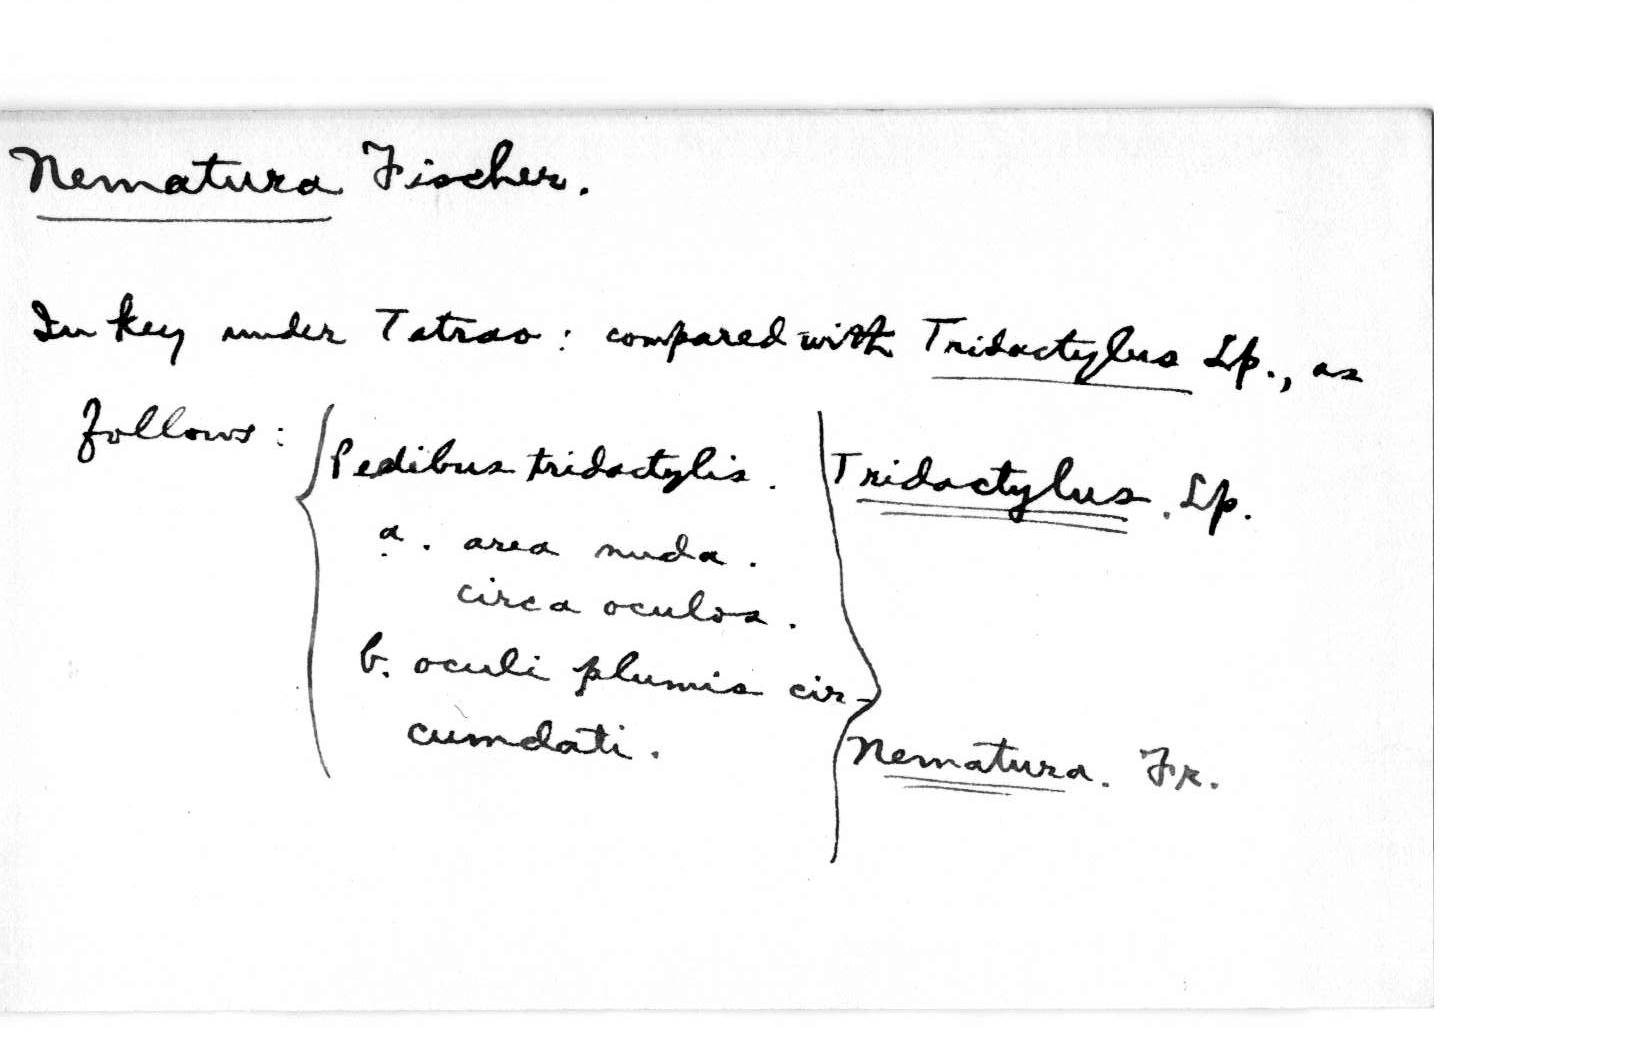 Nematura Fischer.
In key under Tetrao: compared with Tridactylus Lp., as
follows:
Pedibus tridactylis. Tridactylus. Lp.
a. area nuda.
circa oculos.
b. oculi plumis cir-
cumdati. Nematura. Fr.